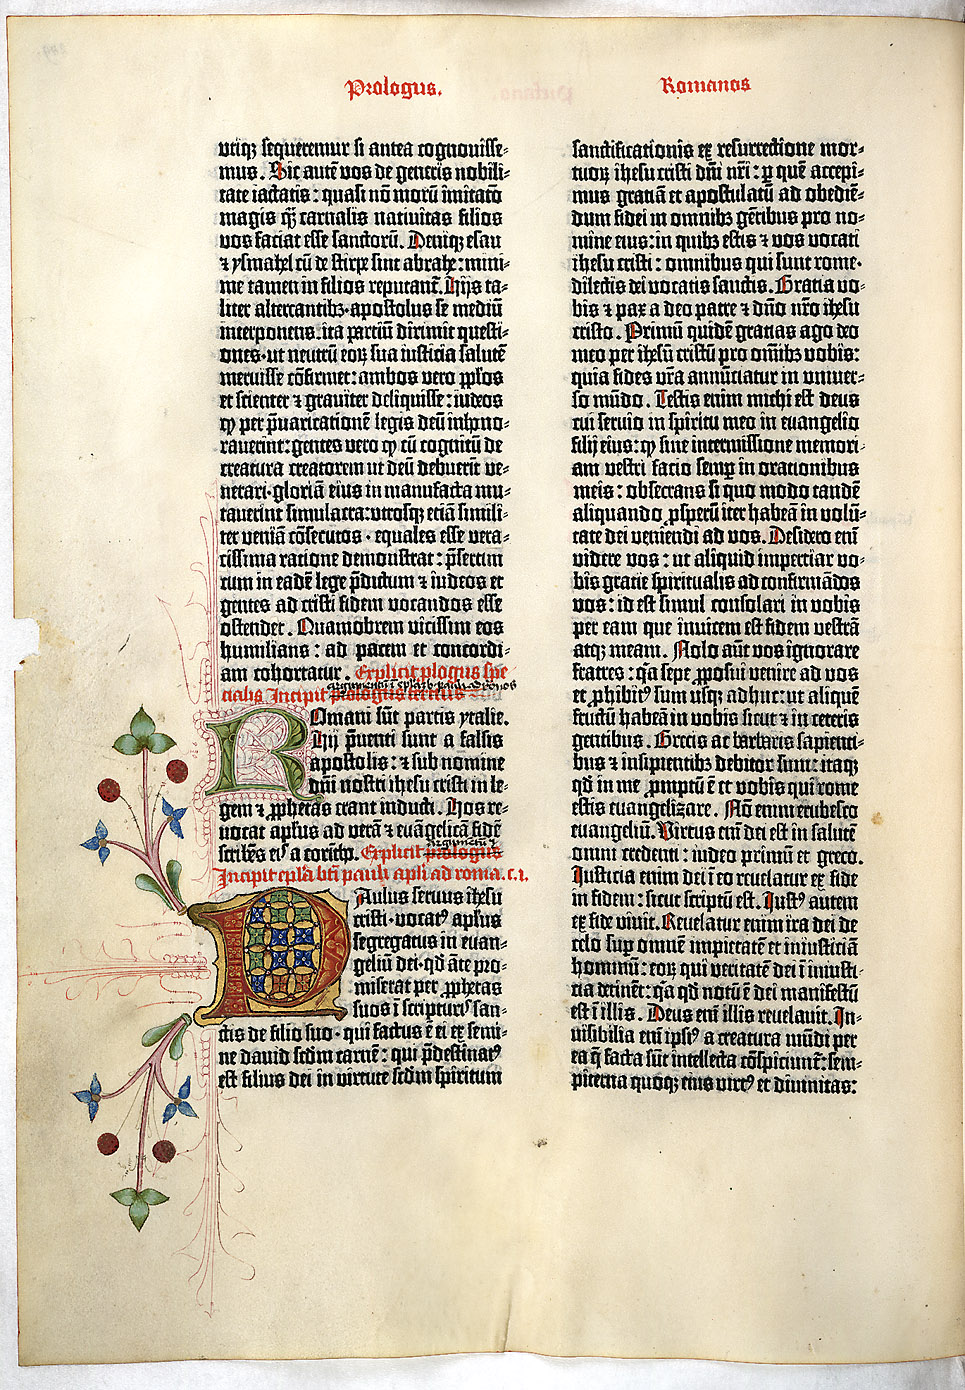 Prologus.
Romanos
utiq; sequeremur si antea cognouisse-
mus. Sic autē vos de generis nobili-
tate iactatis: quasi nō morū imitatō
magis q̃ꝫ carnalis natiuitas filios
vos faciat esse sanctorū. Deniq; esau
⁊ ysmahel cū de stirpe sint abrahe: mini-
me tamen in filios reputant᷑. Hijs ta-
liter altercantibꝫ · apostolus se mediū
interponens · ita partiū dirimit questi-
ones · ut neutrū eoꝝ sua iusticia salutē
meruisse cōfirmet: ambos vero pp̄los
et scienter ⁊ grauiter deliquisse: iudeos
ꝙ per p̄uaricationē legis deū inhono-
rauerint: gentes vero ꝙ cū cognitū de
creatura creatorem ut deū debuerit ve-
nerari · gloriā eius in manufacta mu-
tauerint simulacra: utrosq; etiā simili-
ter veniā cōsecutos · equales esse vera-
cissima ratione demonstrat: p̄sertim
cum in eadē lege p̄dictum ⁊ iudeos et
gentes ad cristi fidem vocandos esse
ostendet. Quamobrem vicissim eos
humilians: ad pacem et concordi-
am cohortatur. Explicit plogus spe-
cialis Incipit prologus tercius
Romani sūt partis ytalie.
Hij p̄uenti sunt a falsis
apostolis: ⁊ sub nomine
dn̄i nostri ihesu cristi in le-
gem ⁊ ꝓphetas erant inducti. Hos re-
uocat apl̄us ad verā ⁊ euāgelicā fidē
scribēs eis a corīthp. Explicit prologus
Incipit epl̄a btī pauli apl̄i ad roma. c. i.
Paulus seruus ihesu
cristi · vocatꝰ apl̄us
segregatus in euan-
geliū dei · qd̄ āte pro-
miserat per ꝓphetas
suos ī scripturis san-
ctis de filio suo · qui factus ē ei ex semi-
ne dauid scd̄m carnē: qui p̄destinatꝰ
est filius dei in virtute scd̄m spiritum
sanctificationis ex resurrectione mor-
tuoꝝ ihesu cristi dn̄i nr̄i: ꝑ quē accepi-
mus gratiā et apostolatū ad obediē-
dum fidei in omnibꝫ gētibus pro no-
mine eius: in quibꝫ estis ⁊ vos vocati
ihesu cristi: omnibus qui sunt rome ·
dilectis dei vocatis sanctis. Gratia vo-
bis ⁊ pax a deo patre ⁊ dn̄o nr̄o ihesu
cristo. Primū quidē gratias ago deo
meo per ihesū cristū pro om̄ibꝫ vobis:
quia fides vr̄a annūciatur in vniuer-
so mūdo. Testis enim michi est deus
cui seruio in spiritu meo in euangelio
filij eius: ꝙ sine intermissione memori-
am vestri facio semꝑ in orationibus
meis: obsecrans si quo modo tandē
aliquando ꝓsperū iter habeā in volū-
tate dei veniendi ad vos. Desidero enī
videre vos: ut aliquid impertiar vo-
bis gratie spiritualis ad confirmādos
vos: id est simul consolari in vobis
per eam que inuicem est fidem vestrā
atq; meam. Nolo aūt vos ignorare
fratres: q̄a sepe ꝓposui venire ad vos
et ꝓhibitꝰ sum usq; adhuc: ut aliquē
fructū habeā in vobis sicut ⁊ in ceteris
gentibus. Grecis ac barbaris sapienti-
bus ⁊ insipientibꝫ debitor sum: itaq;
qd̄ in me ꝓmptū ē et vobis qui rome
estis euangelizare. Nō enim erubesco
euangeliū. Virtus enī dei est in salutē
omni credenti: iudeo primū et greco.
Justicia enim dei ī eo reuelatur ex fide
in fidem: sicut scriptū est. Justꝰ autem
ex fide viuit. Reuelatur enim ira dei de
celo suꝑ omnē impietatē et iniusticiā
hominū: eoꝝ qui veritatē dei ī iniusti-
cia detinēt: q̄a qd̄ notū ē dei manifestū
est ī illis. Deus enī illis reuelauit. In-
uisibilia enī ipsiꝰ a creatura mūdi per
ea q̄ facta sūt intellecta cōspiciunt᷑: sem-
piterna quoq; eius virtꝰ et diuinitas: